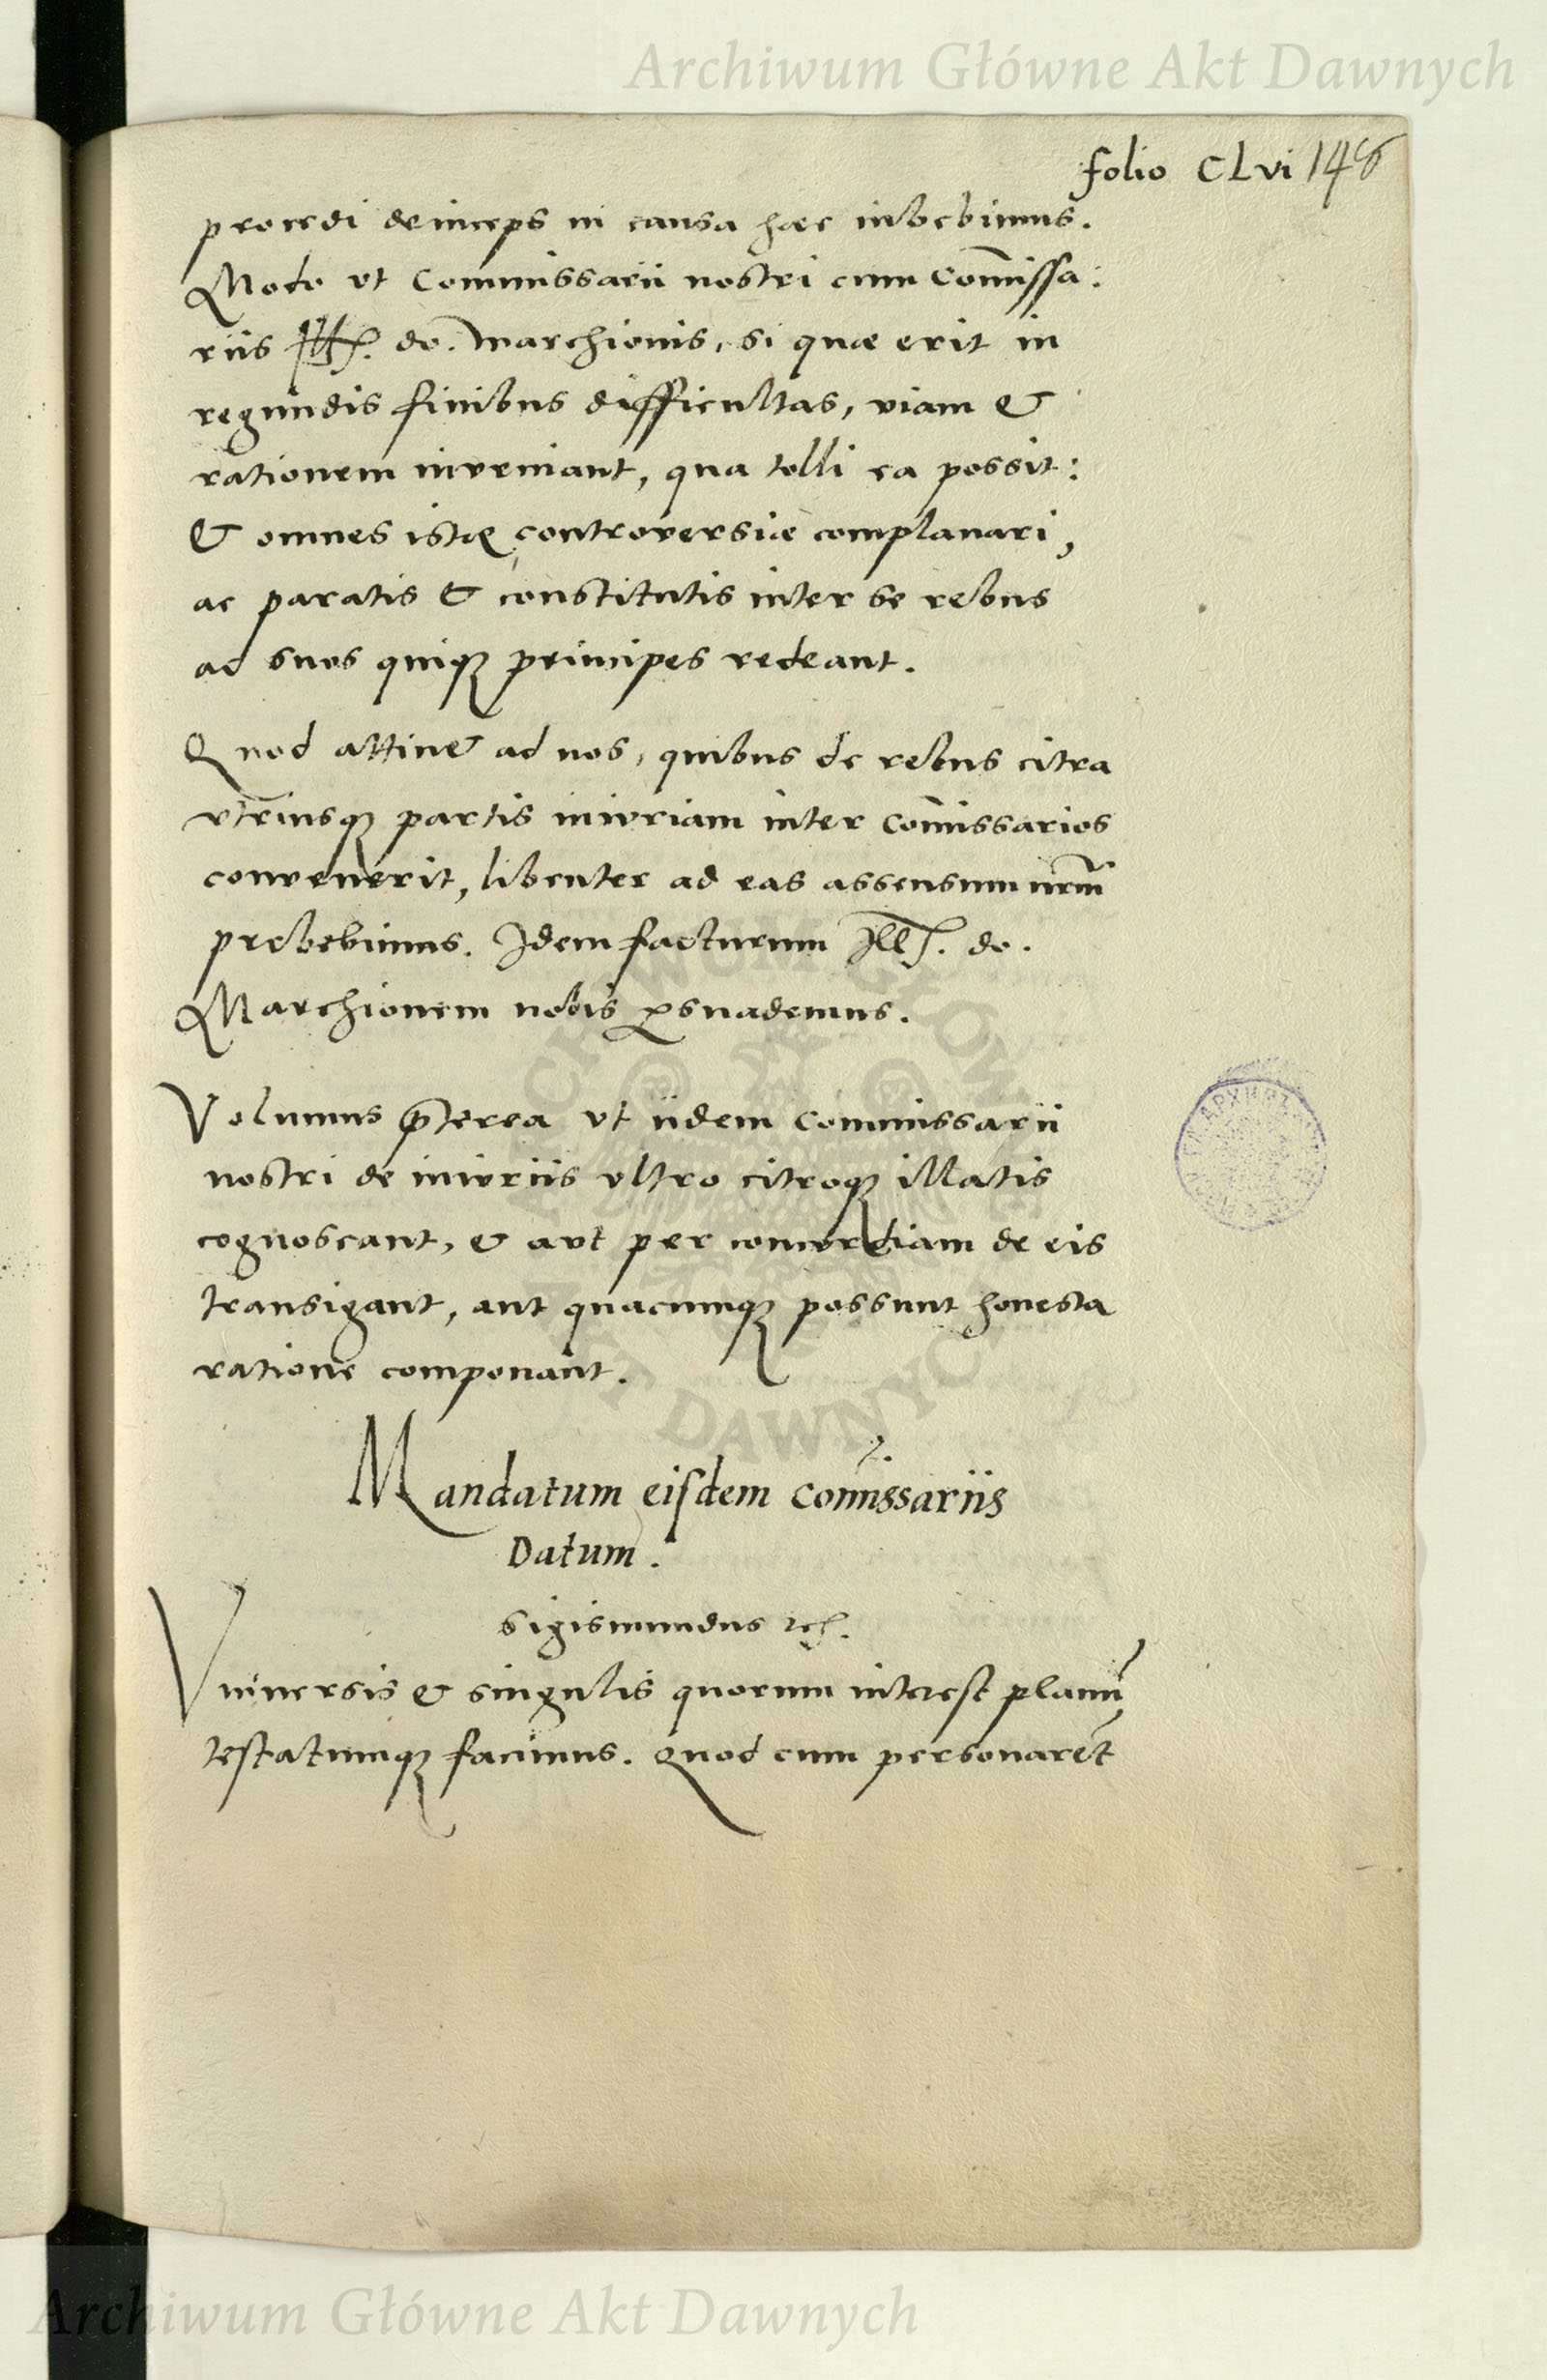 Archiwum Główne Akt Dawnych
folio CLvi 148
procedi deinceps in causa hac iubebimus.
Modo vt Commissarii nostri cum Comissa:
riis Ill. do. Marchionis, si quae erit in
regundis finibus difficultas, viam &
rationem inveniant, qua tolli ea possit:
& omnes istę controversiae complanari,
ac paratis & constitutis inter se rebus
ad suos quique principes redeant.
Quod attinet ad nos, quibus de rebus citra
vtriusque partis iniuriam inter Comissarios
convenerit, libenter ad eas assensum nrm̄
prebebimus. Idem facturum Ill. do.
Marchionem nobis persuademus.
Volumus p̄terea vt iidem Commissarii
nostri de iniuriis vltro citroque illatis
cognoscant, & aut per concordiam de eis
transigant, aut quacumque possunt honesta
ratione componant.
Mandatum eisdem Comissariis
Datum.
Sigismundus rex.
Vniuersis & singulis quorum interest planū
testatumque facimus. Quod cum personarēt
ARCHIWUM GŁÓWNE
AKT DAWNYCH
Archiwum Główne Akt Dawnych